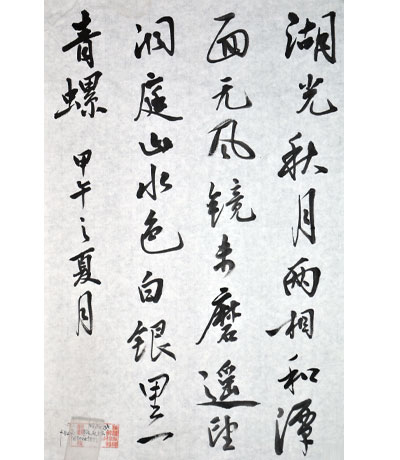 湖光秋月两相和潭
面无风镜未磨遥望
洞庭山水色白银里一
青螺
甲午之夏月